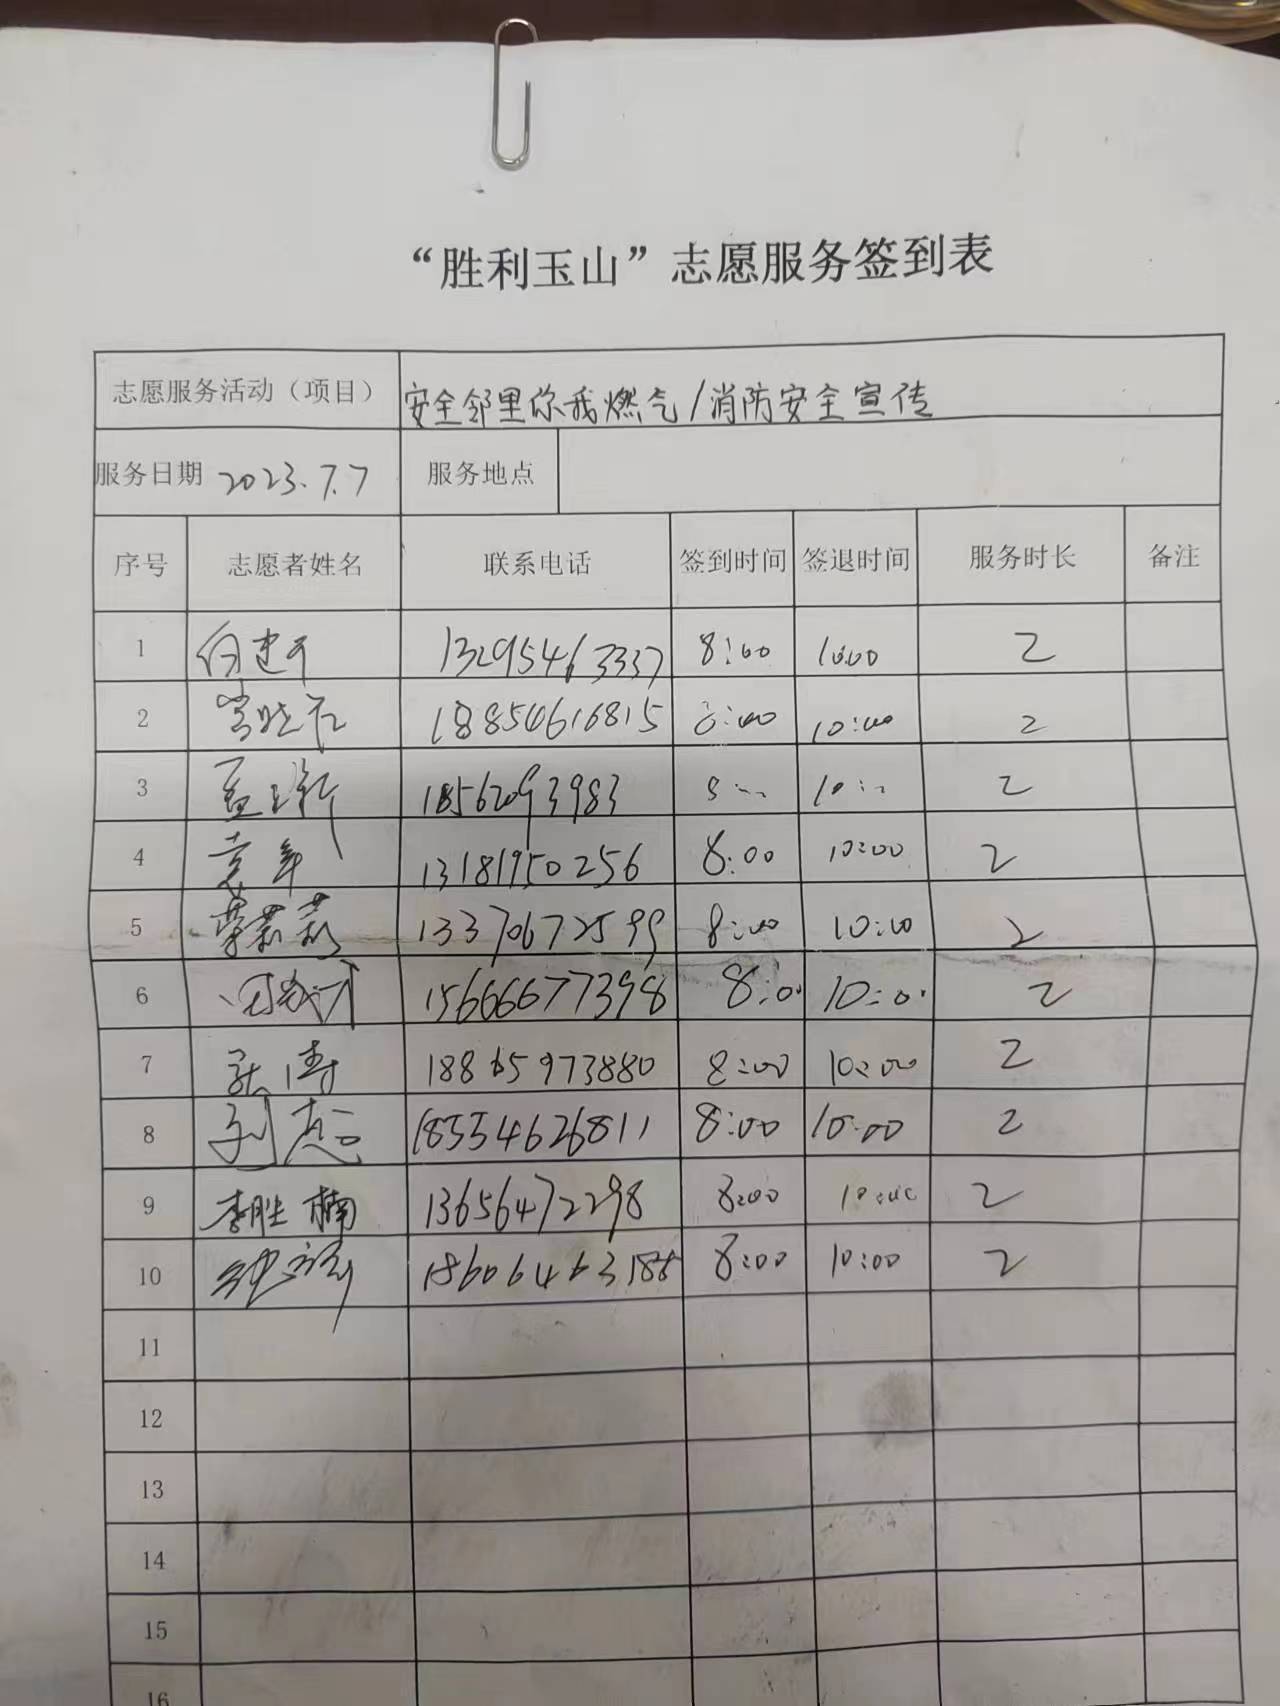 “胜利玉山”志愿服务签到表
志愿服务活动（项目） 安全邻里你我燃气/消防安全宣传
服务日期 2023.7.7 服务地点
序号 志愿者姓名 联系电话 签到时间 签退时间 服务时长 备注
1 13295463337 8:00 10:00 2
2 18854616815 8:00 10:00 2
3 18562093983 8 10 2
4 袁军 13181950256 8:00 10:00 2
5 荣莉莉 13370672599 8:00 10:00 2
6 15666677398 8:00 10:00 2
7 张涛 18865973880 8:00 10:00 2
8 刘慧 18554626811 8:00 10:00 2
9 李胜楠 13656472298 8:00 10:00 2
10 18606463188 8:00 10:00 2
11
12
13
14
15
16